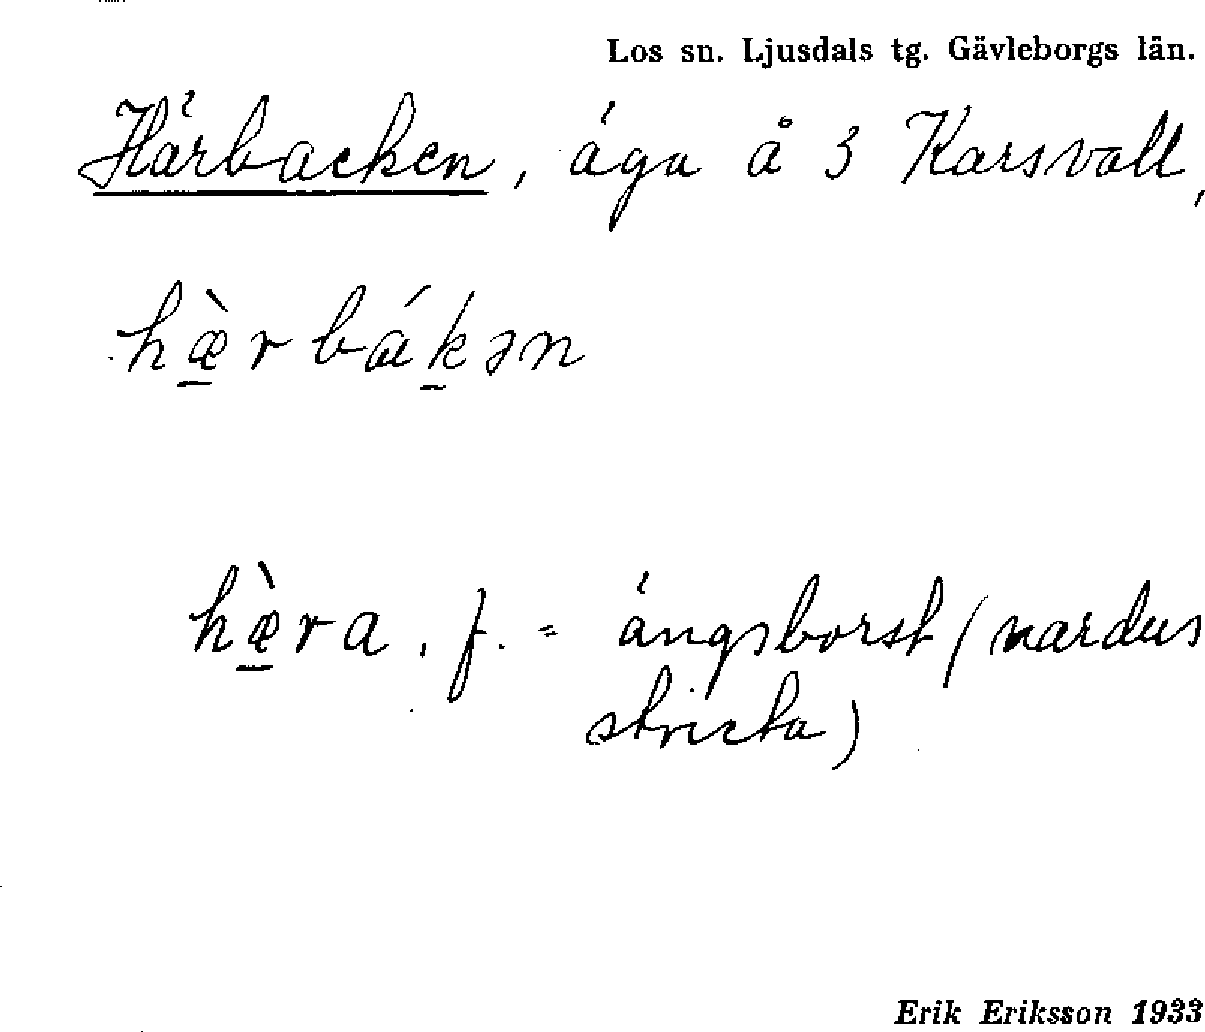 Los sn. Ljusdals tg. Gävleborgs län.
Härbacken, äga å 3 Karsvall,
hæ̠̀rbák̠ən
hæ̠̀ra, f. = ängsborst (nardus
stricta)
Erik Eriksson 1933